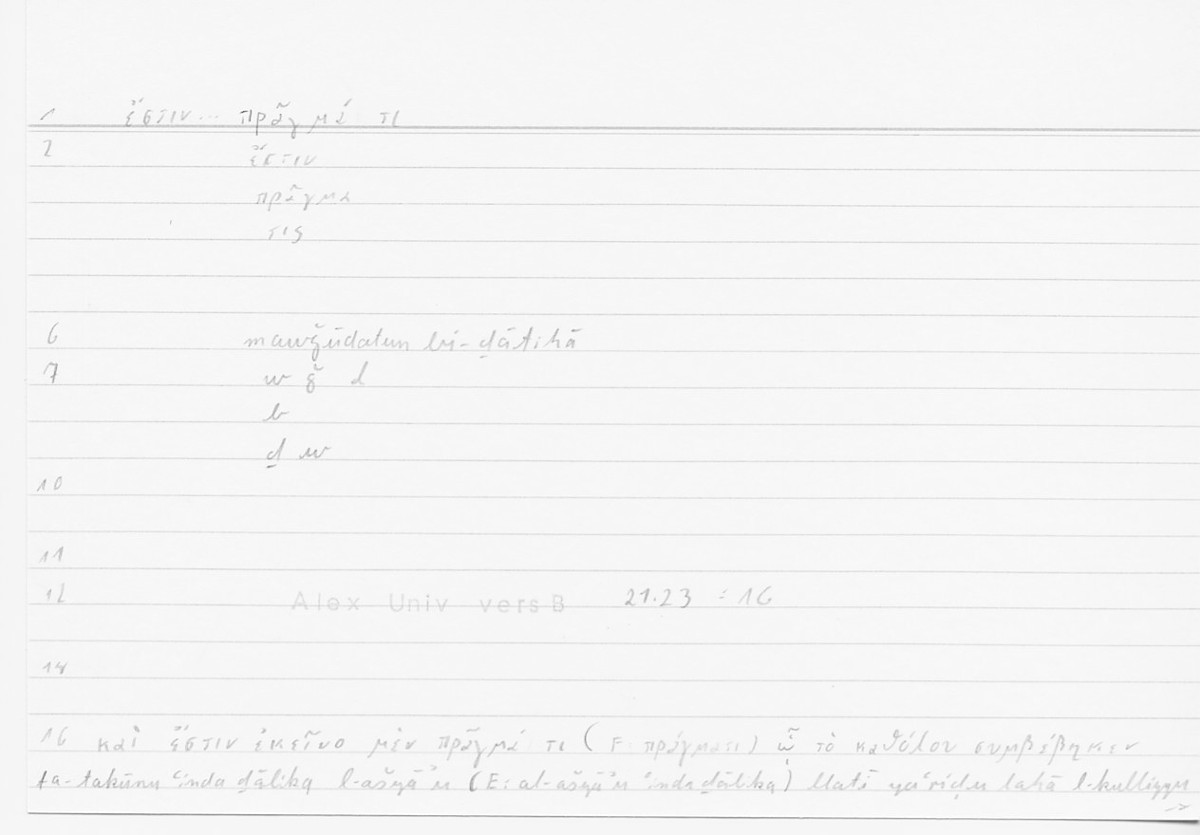 1 ἔστιν... πρᾶγμά τι
2 ἔστιν
πρᾶγμα
τις
6 mawǧūdatun bi-ḏātihā
7 w ǧ d
b
ḏ w
10
11
12 Alex Univ vers B 21.23 = 16
14
16 καὶ ἔστιν ἐκεῖνο μὲν πρᾶγμά τι (F: πράγμασι) ᾧ τὸ καθόλου συμβέβηκεν
fa-takūnu ʿinda ḏālika l-ašyāʾu (E: al-ašyāʾu ʿinda ḏālika) llatī yaʿriḍu lahā l-kulliyyu